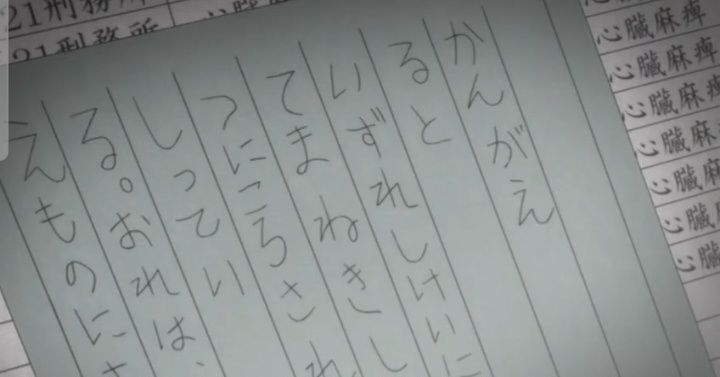 かんがえ
ると
いずれしけいに
てまねきし
つにころされ
しってい
る。おれは、
えものにさ
21刑務所
21刑務所
心臓麻痺
心臓麻痺
心臓麻痺
心臓麻痺
心臓麻痺
心臓
心臓